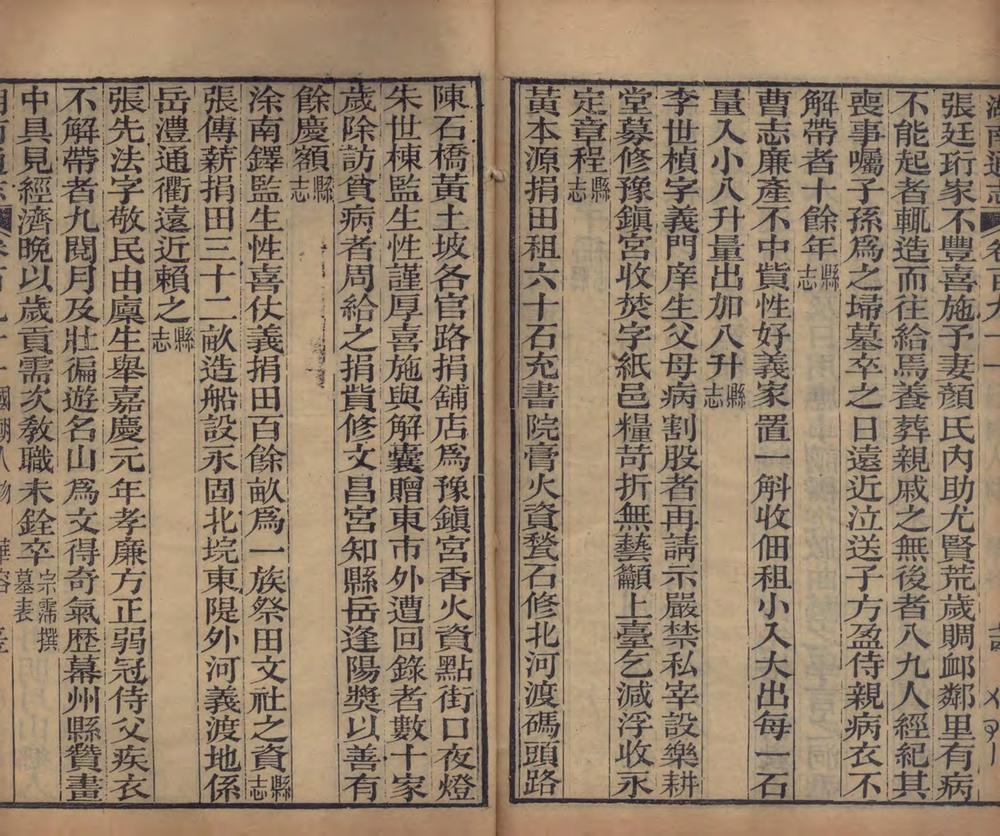 張廷珩家不豐喜施予妻顏氏內助尤賢荒歲賙卹鄰里有病
不能起者輒造而往給焉養葬親戚之無後者八九人經紀其
喪事囑子孫爲之埽墓卒之日遠近泣送子方盈侍親病衣不
解帶者十餘年縣志
曹志廉產不中貲性好義家置一斛收佃租小入大出每一石
量入小八升量出加八升縣志
李世楨字義門庠生父母病割股者再請示嚴禁私宰設樂耕
堂募修豫鎭宮收焚字紙邑糧苛折無藝籲上臺乞減浮收永
定章程縣志
黃本源捐田租六十石充書院膏火資甃石修北河渡碼頭路
陳石橋黃土坡各官路捐舖店爲豫鎭宮香火資點街口夜燈
朱世棟監生性謹厚喜施與解囊贈東市外遭回錄者數十家
歲除訪貧病者周給之捐貲修文昌宮知縣岳逢陽獎以善有
餘慶額縣志
涂南鐸監生性喜仗義捐田百餘畝爲一族祭田文社之資縣志
張傳薪捐田三十二畝造船設永固北垸東隄外河義渡地係
岳澧通衢遠近賴之縣志
張先法字敬民由廩生舉嘉慶元年孝廉方正弱冠侍父疾衣
不解帶者九閱月及壯徧遊名山爲文得奇氣歷幕州縣贊畫
中具見經濟晚以歲貢需次敎職未銓卒宗霈撰墓表